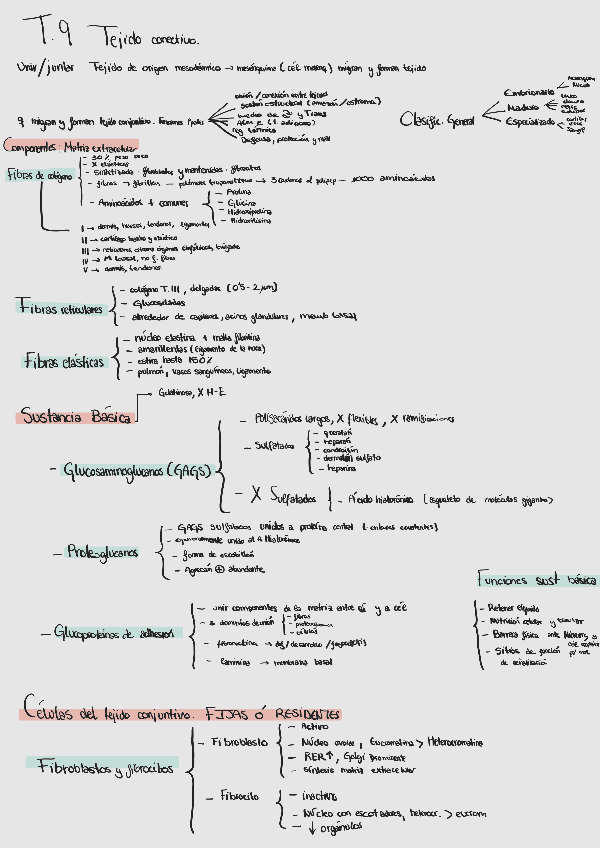 T.9 Tejido conectivo.
Unir/juntar Tejido de origen mesodérmico → mesénquima (cél madre) migran y forman tejido
q migran y forman tejido conjuntivo. Funciones
unión / conexión entre tejidos
sostén estructural (armazón/estroma)
medio de
reg térmica
Defensa, protección y
Clasific. General
Embrionario
Maduro
Especializado
Componentes: Matriz extracelular
Fibras de colágeno
- 30% peso seco
- X elásticas
- Sintetizada: fibroblastos y mantenidas: fibrocitos
- fibras → fibrillas → → 3 cadenas → 1000 aminoácidos
- Aminoácidos + comunes
- Prolina
- Glicina
- Hidroxiprolina
- Hidroxilisina
I → dermis, huesos, tendones, ligamentos
II → cartílago hialino y elástico
III → reticulares, estroma órganos linfáticos, hígado
IV → M basal, no f. fibras
V → dermis, tendones
Fibras reticulares
- colágeno T. III, delgadas (0'5 - 2 µm)
- Glucosiladas
- alrededor de capilares, acinos glandulares, memb basal
Fibras elásticas
- núcleo elastina + malla fibrilina
- amarillentas (ligamento de la nuca)
- estira hasta 150%
- pulmón, vasos sanguíneos, ligamento
Gelatinosa, X H-E
Sustancia Básica
- Glucosaminoglucanos (GAGS)
- Polisacáridos largos, X flexibles, X ramificaciones
- Sulfatados
- queratán
- heparán
- condroitín
- dermatán sulfato
- heparina
- X Sulfatados
- Ácido hialurónico (esqueleto de moléculas gigantes)
- Proteoglucanos
- GAGS sulfatados unidos a proteína central (enlaces covalentes)
- unido al A Hialurónico
- forma de escobillón
- Agrecán ⊕ abundante
Funciones sust básica
- Retener líquido
- Nutrición celular y
- Barrera física ante
- Sitios de
- Glucoproteínas de adhesión
- unir componentes de la matriz entre sí y a cél
- 3 dominios de unión
- fibras
- proteoglucanos
- células
- fibronectina →
- Laminina → membrana basal
Células del tejido conjuntivo. FIJAS Ó RESIDENTES
Fibroblastos y fibrocitos
- Fibroblasto
- Activo
- Núcleo ovoide, Eucromatina > Heterocromatina
- RER↑, Golgi prominente
- Síntesis matriz extracelular
- Fibrocito
- inactivo
- Núcleo con escotaduras, heterocr. > eucrom
- ↓ orgánulos